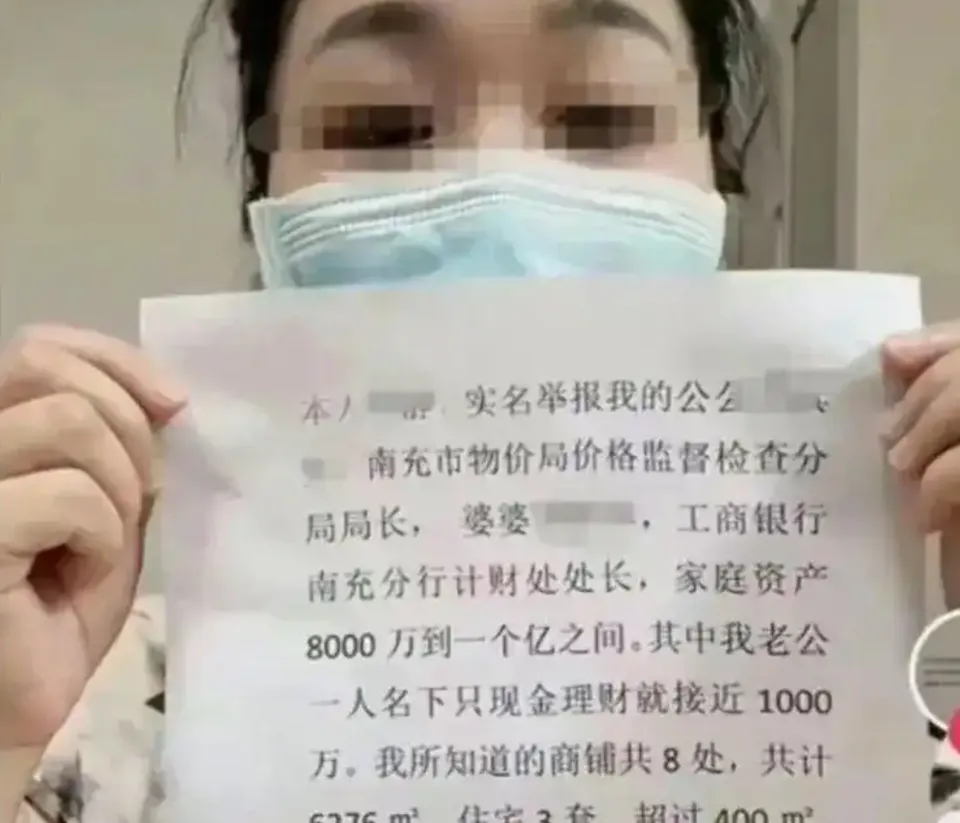 本人 实名举报我的公公
南充市物价局价格监督检查分
局局长，婆婆 ，工商银行
南充分行计财处处长，家庭资产
8000 万到一个亿之间。其中我老公
一人名下只现金理财就接近 1000
万。我所知道的商铺共 8 处，共计
6276 m²，住宅 3 套，超过 400 m²，